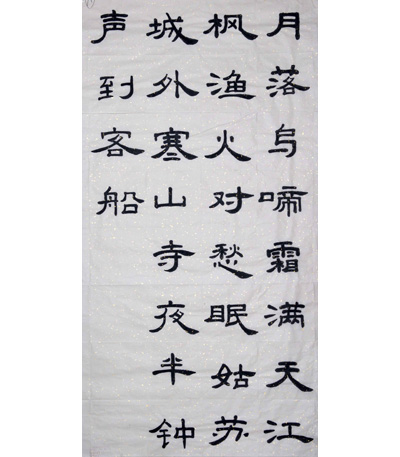 月落乌啼霜满天江
枫渔火对愁眠姑苏
城外寒山寺夜半钟
声到客船